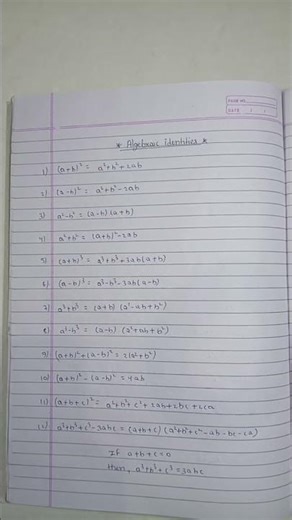 PAGE NO.
DATE / /
* Algebraic Identities *
1) (a+b)² = a²+b²+2ab
2) (a-b)² = a²+b²-2ab
3) a²-b² = (a-b) (a+b)
4) a²+b² = (a+b)²-2ab
5) (a+b)³ = a³+b³+3ab(a+b)
6) (a-b)³ = a³-b³-3ab(a-b)
7) a³+b³ = (a+b) (a²-ab+b²)
8) a³-b³ = (a-b) (a²+ab+b²)
9) (a+b)²+(a-b)² = 2(a²+b²)
10) (a+b)² - (a-b)² = 4ab
11) (a+b+c)² = a²+b²+c²+2ab+2bc+2ca
12) a³+b³+c³-3abc = (a+b+c) (a²+b²+c²-ab-bc-ca)
If a+b+c=0
then, a³+b³+c³=3abc